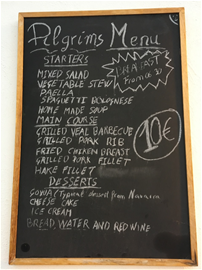 Pelgrims Menu
STARTERS
BREAKFAST
From 6:30
MIXED SALAD
VEGETABLE STEW
PAELLA
SPAGUETTI BOLOGNESE
HOME MADE SOUP
MAIN COURSE
GRILLED VEAL BARBECUE
GRILLED PORK RIB
FRIED CHICKEN BREAST
GRILLED PORK FILLET
HAKE FILLET
10€
DESSERTS
(Typical dessert from Navarra
CHEESE CAKE
ICE CREAM
BREAD, WATER AND RED WINE